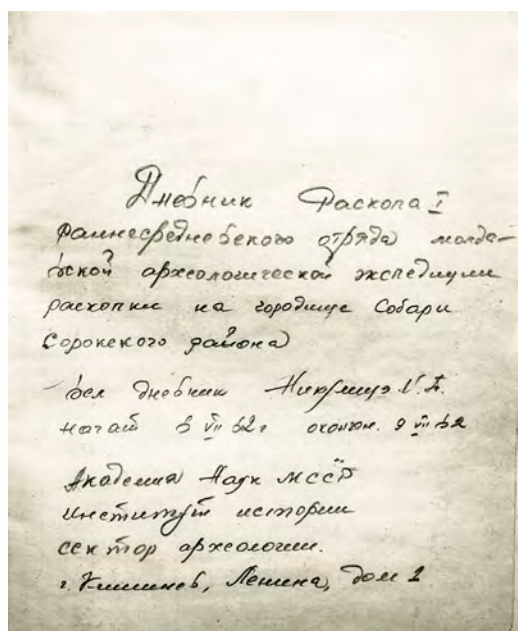 Дневник Раскопа I
раннесредневекого отряда молда-
вской археологической экспедиции
раскопки на городище Собари
Сорокского района
вел дневник И.А.
начат 3 VII 62 г окончен. 9 VII 62
Академия Наук МССР
Институт истории
сектор археологии.
г. Кишинев, Ленина, дом 1